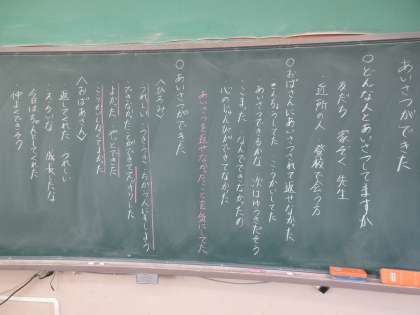 あいさつができた
○どんな人とあいさつしてますか
・友だち 家ぞく 先生
・近所の人 登校で会う方
○おばさんにあいさつされて返せなかった
・きんちょうしてた こうかいしてた
・あいさつできるかな 次はゆうきだそう
・こまった なんでできなかったか
心のじゅんびができてなかった
あいさつを返せなかったことを気にしてた
○あいさつができた
〈ひろ子〉
うれしい つぎ
できなかったことができてうれしかった
よかった やっとできた
〈おばあさん〉
返してくれた うれしい
・えらいな 成長したな
今日はちゃんとしてくれた
仲よくできそう